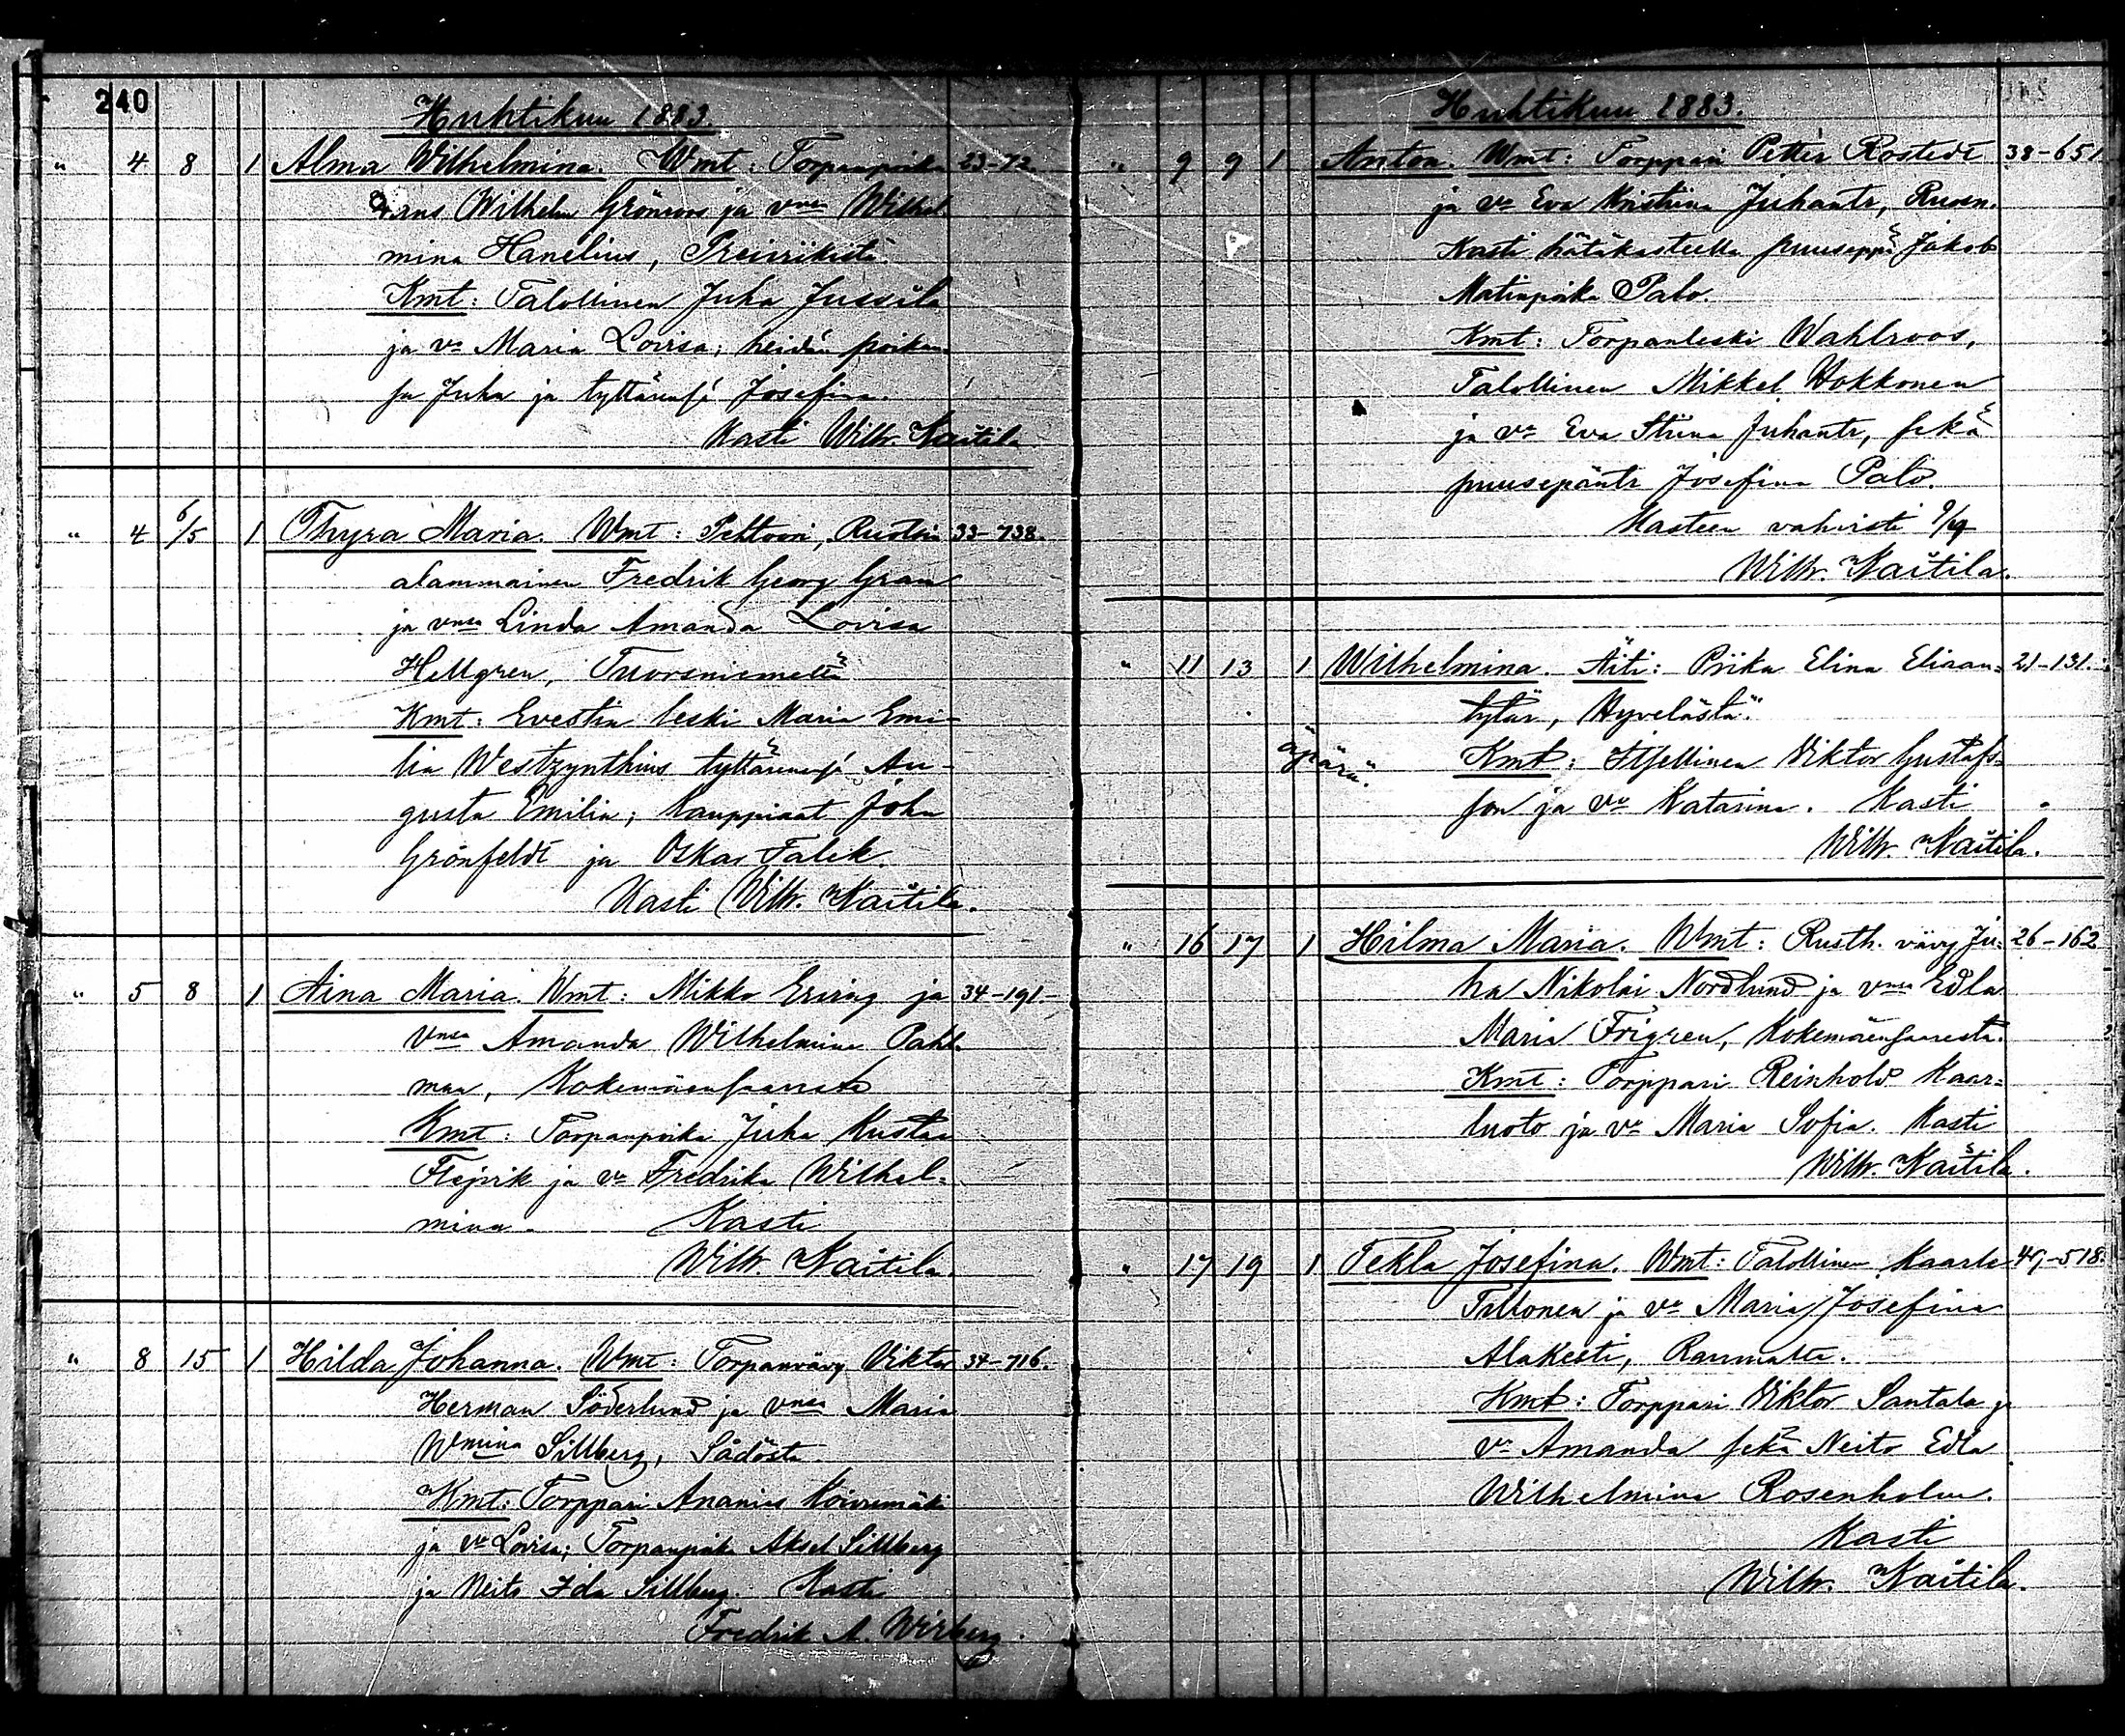 240
Huhtikuu 1883.
" 4 8 1 Alma Wilhelmina. Wmt: Torpanpoika 23-72.
Frans Wilhelm Grönroos ja vmsa Wilhel-
mina Hanelius, Preiviikistä.
Kmt: Talollinen Juha Jussila
ja vo Maria Lovisa; heidän poikan-
sa Juha ja tyttärensä Josefina.
Kasti Wilh. Kaitila
" 4 6/5 1 Thyra Maria. Wmt: Ruotsin 33-738.
alammainen Fredrik Georg Gran
ja vmsa Linda Amanda Lovisa
Hellgren, Tuorsniemeltä
Kmt: leski Maria Emi-
lia Westzynthius tyttärensä Au-
gusta Emilia; Kauppiaat John
Grönfeldt ja Oskar Falck.
Kasti Wilh. Kaitila.
" 5 8 1 Aina Maria. Wmt: Mikko ja 34-191-
vmsa Amanda Wilhelmina Pahl-
man, Kokemäensaaresta
Kmt: Torpanpoika Juha Kustaa
ja vo Fredrika Wilhel-
mina. Kasti
Wilh. Kaitila.
" 8 15 1 Hilda Johanna. Wmt: Torpanvävy Viktor 34-716.
Herman Söderlund ja vmsa Maria
Wmina Sillberg, Sädöstä.
Kmt: Torppari Ananias Koivumäki
ja vo Lovisa; Torpanpoika Aksel Sillberg
ja Neito Ida Sillberg. Kasti
Fredrik A. Wirberg.
Huhtikuu 1883.
" 9 9 1 Anton. Wmt: Torppari Petter Rostedt 38-651
ja vo Eva Kristiina Juhantr, Ruosn.
Kasti hätäkasteella puuseppä Jakob
Matinpoika Palo.
Kmt: Torpanleski Wahlroos,
Talollinen Mikkel Hokkonen
ja vo Eva Stiina Juhantr, sekä
puusepäntr Josefina Palo.
Kasteen vahvisti 9/4
Wilh. Kaitila.
" 11 13 1 Wilhelmina. Äiti: Piika Elina Eliaan- 21-131.
tytär, Hyvelästä.
äpärä. Kmt: Itsellinen Viktor Gustafs-
son ja vo Katarina. Kasti
Wilh. Kaitila.
" 16 17 1 Hilma Maria. Wmt: Rusth. vävy Ju- 26-162
ha Nikolai Nordlund ja vmsa Edla
Maria Frigren, Kokemäensaaresta.
Kmt: Torppari Reinhold Kaar-
luoto ja vo Maria Sofia. Kasti
Wilh. Kaitila.
" 17 19 1 Tekla Josefina. Wmt: Talollinen Kaarle 49-518.
Tallonen ja vo Maria Josefina
Alakesti, Ranmalta.
Kmt: Torppari Viktor Santala ja
vo Amanda sekä Neito Edla
Wilhelmina Rosenholm.
Kasti
Wilh. Kaitila.